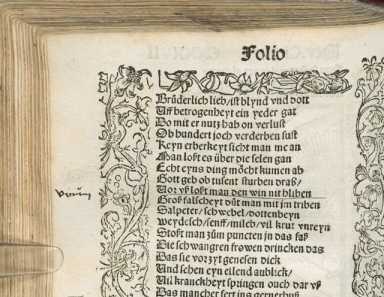 Folio
Brüderlich lieb/ ist blynd vnd dott
Vff betrogenheyt ein yeder gat
Do mit er nutz hab on verlust
Ob hundert joch verderben sust
Keyn erberkeyt sicht man me an
Man loßt es über die selen gan
Echt eyns ding möcht kumen ab
Gott geb ob tusent sturben draß/
Vor vß loßt man den win nit bliben
Groß falscheyt důt man mit jm triben
Salpeter/ schwebel/ dottenbeyn
weydesch/ senff/ milch/ vil krut vnreyn
Stoßt man zům puncten jn das faß
Die schwangren frowen drincken das
Das sie vorzyt genesen dick
Vnd sehen eyn eilend anblick/
Vil kranckheyt springen ouch dar vß
Das mancher fert jns gernerhuß